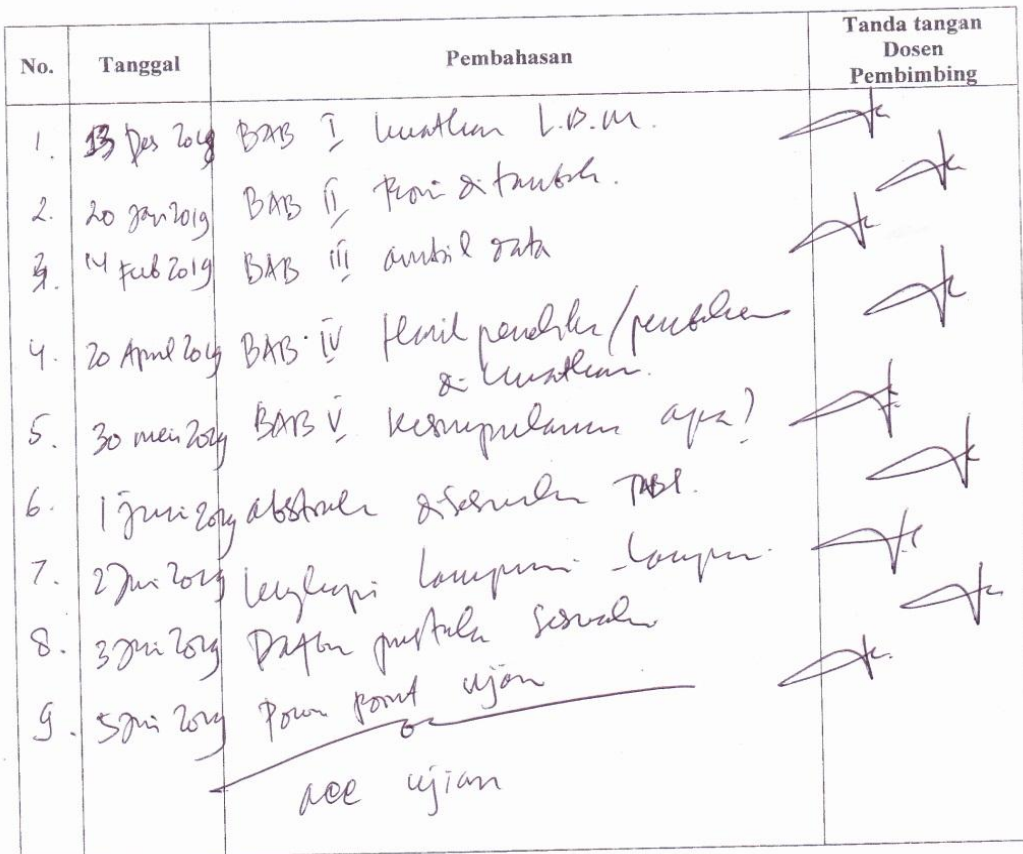 No. Tanggal Pembahasan Tanda tangan Dosen Pembimbing
1. 13 Des 2019 BAB I kuatkan L.B.M.
2. 20 Jan 2019 BAB II Teori ditambah.
3. 14 Feb 2019 BAB III ambil data
4. 20 April 2019 BAB IV Hasil
di kuatkan.
5. 30 mei 2019 BAB V kesimpulannya apa?
6. 1 juni 2019 abstrak disesuaikan
7. 2 Juni 2019 lengkapi lampiran-lampiran
8. 3 Juni 2019 Daftar pustaka sesuaikan
9. 5 Juni 2019 Power Point ujian
acc ujian